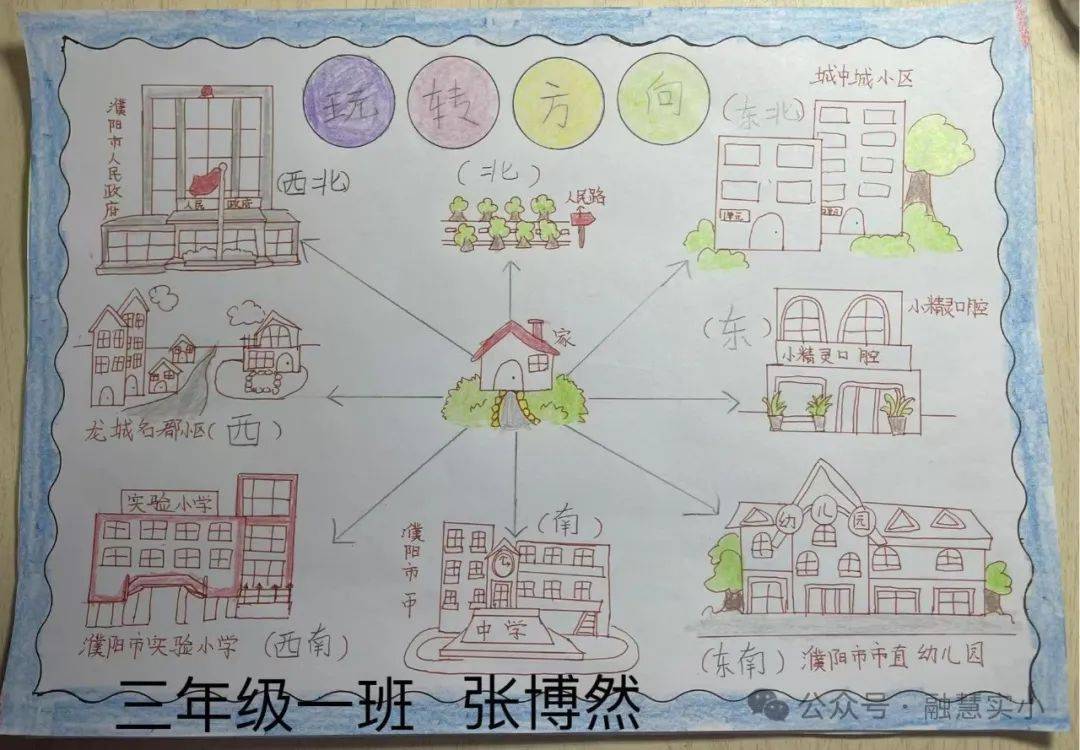 玩转方向
城中城小区
(东北)
1单元
2单元
濮阳市人民政府
人民政府
(西北)
(北)
人民路
家
(东)
小精灵口腔
小精灵口腔
龙城名郡小区(西)
实验小学
濮阳市实验小学(西南)
(南)
濮阳市
中学
幼儿园
(东南)濮阳市市直幼儿园
三年级一班 张博然
公众号·融慧实小